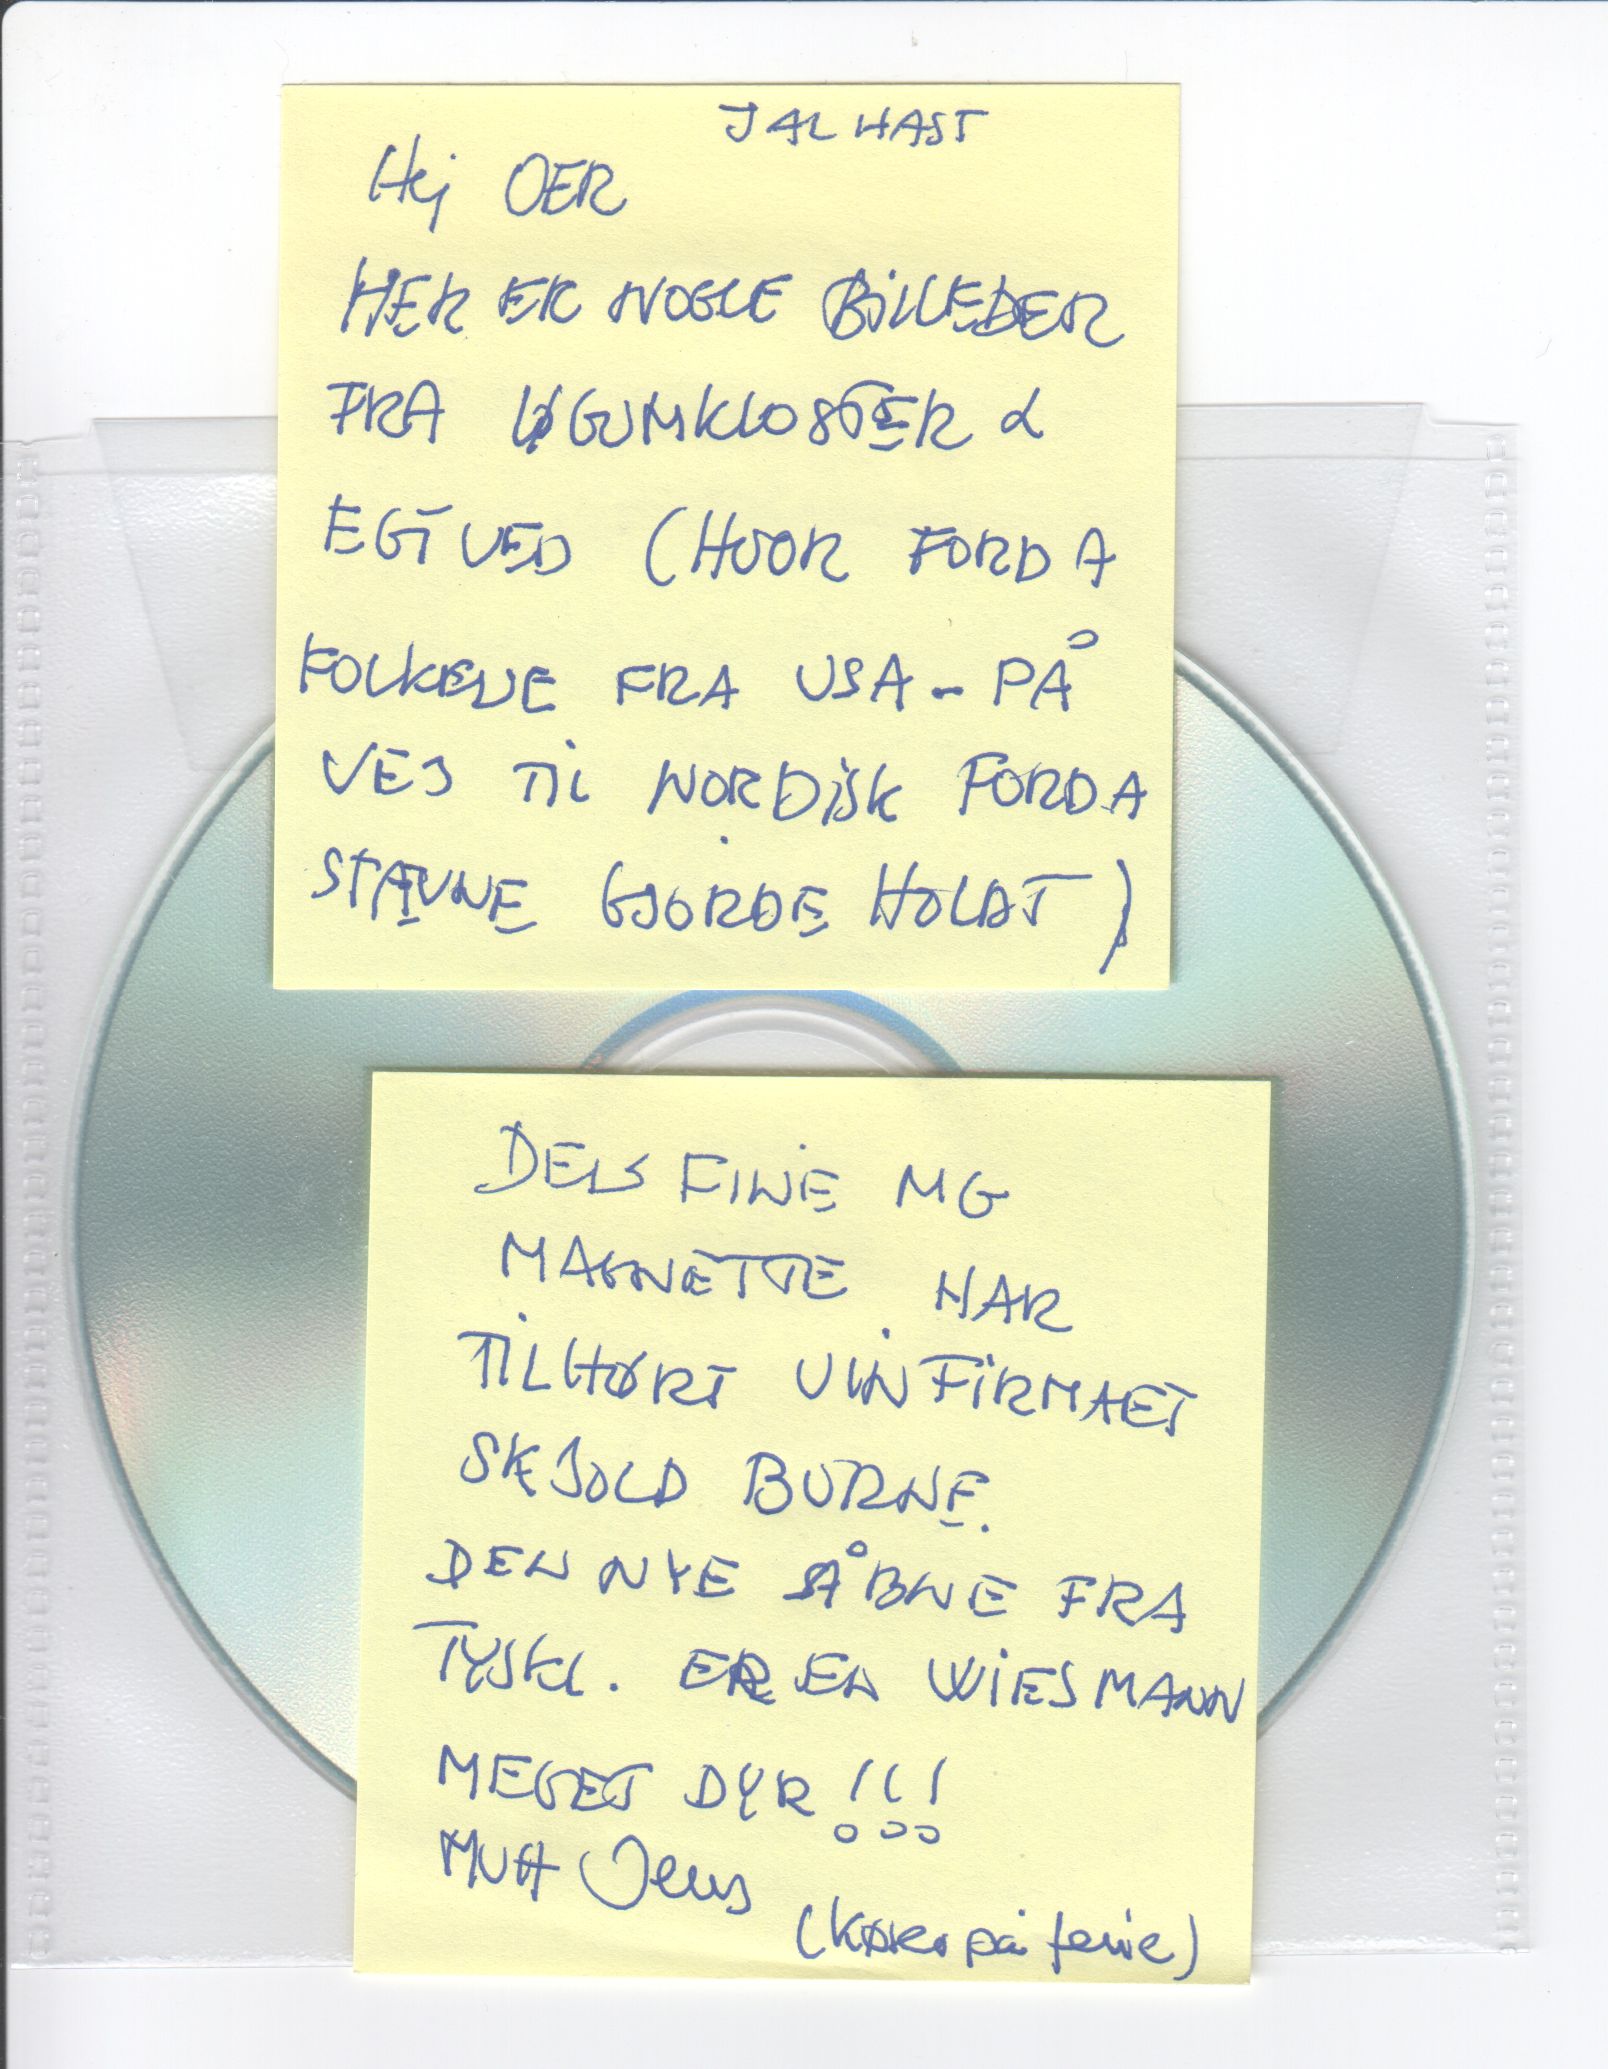 I AL HAST
Hej OER
HER ER NOGLE BILLEDER
FRA LØGUMKLOSTER &
EGTVED (HVOR FORD A
FOLKENE FRA USA - PÅ
VEJ TIL NORDISK FORD A
STÆVNE GJORDE HOLDT)
DELS FINE MG
MAGNETTE HAR
TILHØRT VINFIRMAET
SKJOLD BURNE.
DEN NYE ÅBNE FRA
TYSKL. ER EN WIESMANN
MEGET DYR!!!
MVH Jens
(Kører på ferie)